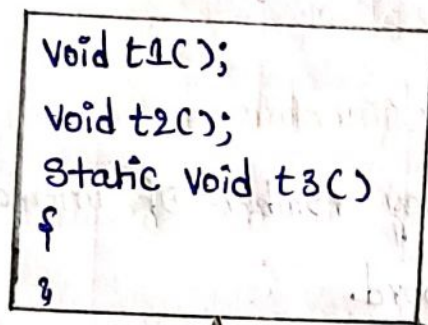 void t1();
void t2();
static void t3()
{
}